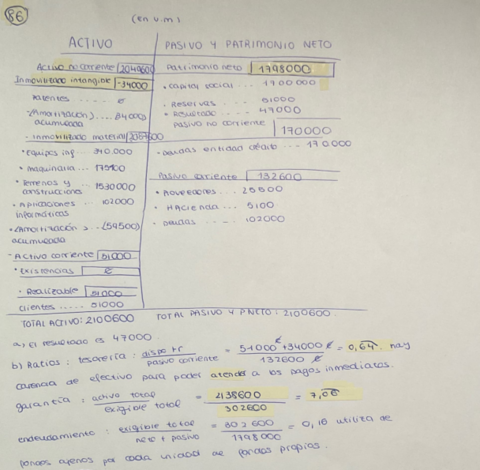 86
(en u.m)
ACTIVO
PASIVO Y PATRIMONIO NETO
Activo no corriente 2049600
Patrimonio neto 1798000
Inmovilizado intangible -34000
• capital social ... 1700000
Patentes
• Reservas 51000
(Amortización) ... 34000
acumulada
• Resultado ... 47000
Pasivo no corriente 170000
- Inmovilizado material
• equipos inf. 340.000
- deudas entidad crédito ... 170000
• maquinaria ...
• Terrenos y construcciones ... 1530000
Pasivo corriente 132600
• Aplicaciones informáticas 102000
• Proveedores ... 25500
• Hacienda ... 5100
• (Amortización) ... (59500)
acumulada
• deudas ... 102000
- Activo corriente 51000
• Existencias
- Realizable 51000
clientes ..... 51000
TOTAL ACTIVO: 2100600
TOTAL PASIVO Y P.NETO: 2100600.
a) El resultado es 47000.
b) Ratios: tesorería: dispo+r / pasivo corriente = 51000€+34000€ / 132600€ = 0,64. hay
carencia de efectivo para poder atender a los pagos inmediatos.
garantía: activo total / exigible total = 2138600 / 302600 = 7,06
endeudamiento: exigible total / neto + pasivo = 302600 / 1798000 = 0,16 utiliza de
fondos ajenos por cada unidad de fondos propios.